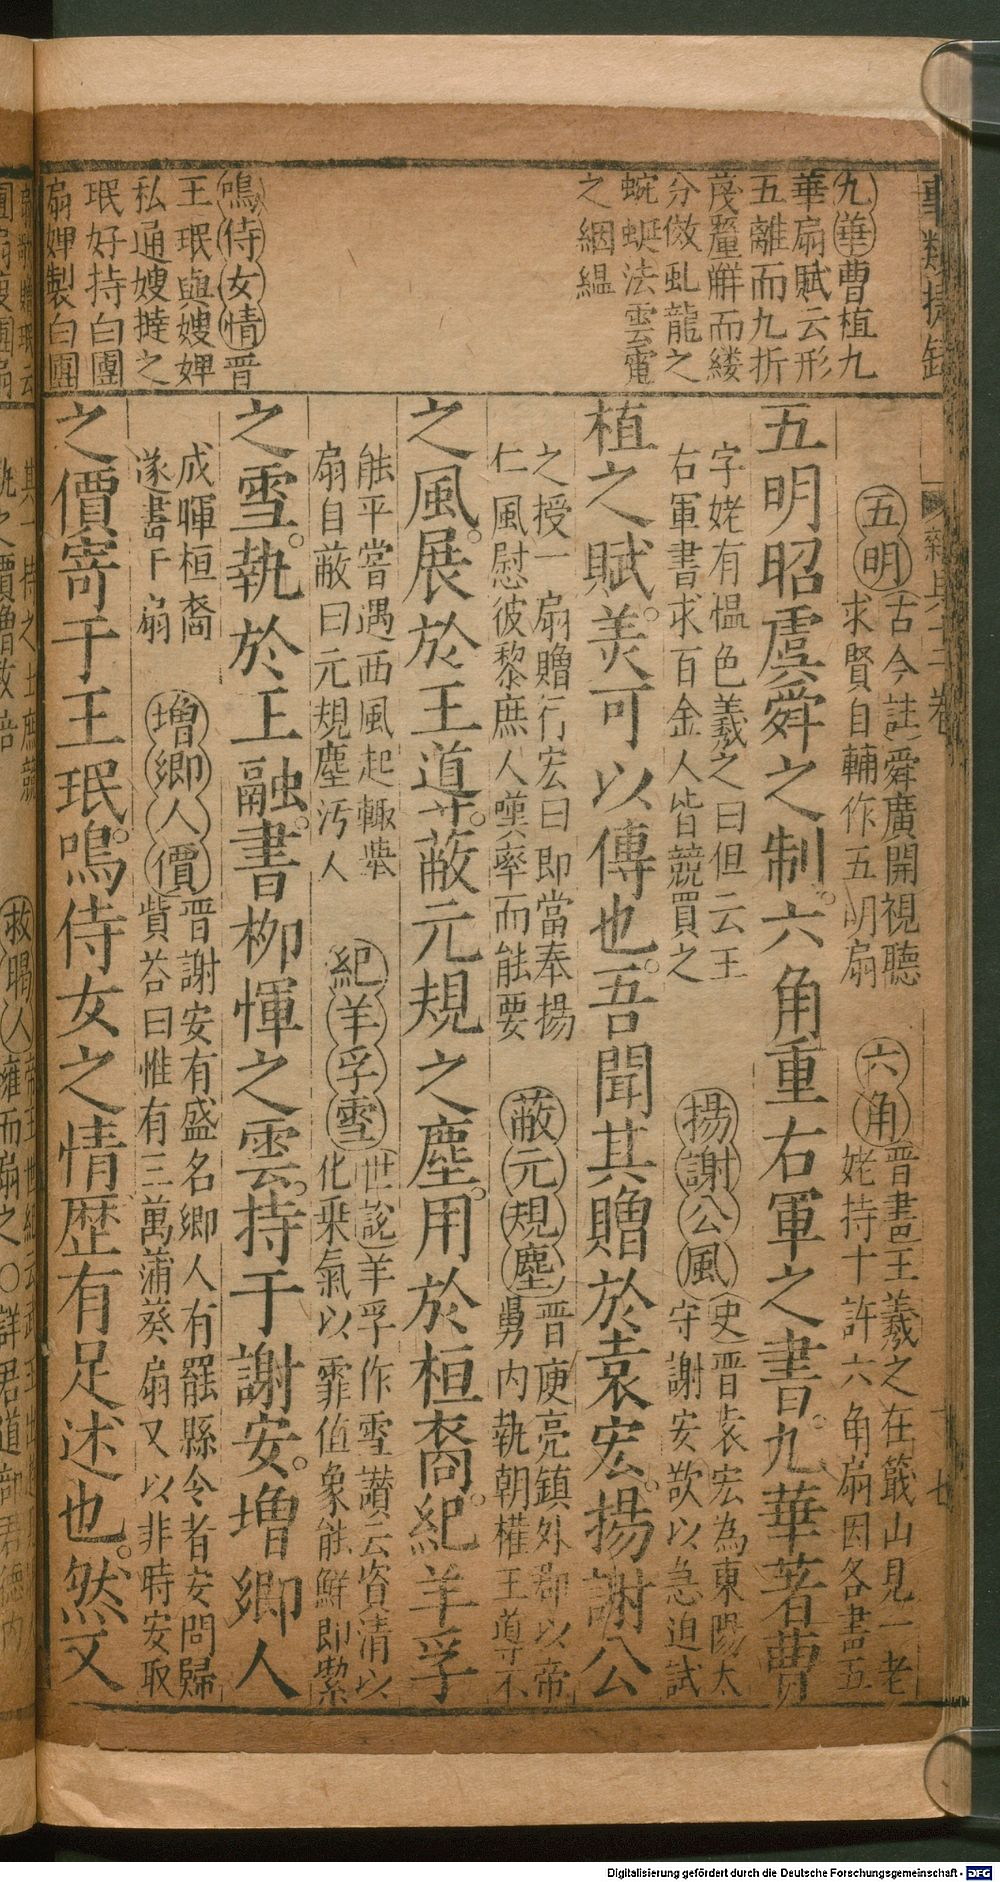 九華曹植九
華扇賦云形
五離而九折
茂釐觧而縷
分傚虬龍之
蜿蜒法雲電
之絪縕
鳴侍女情晋
王珉與嫂婢
私通嫂撻之
珉好持白團
扇婢製白團
五明(古今註)舜廣開視聽
求賢自輔作五明扇
六角晋書王羲之在蕺山見一老
姥持十許六角扇因各書五
五明昭虞舜之制。六角重右軍之書。九華著曹
字姥有愠色羲之曰但云王
右軍書求百金人皆競買之
揚謝公風(史)晋袁宏為東陽太
守謝安欲以急迫試
植之賦。美可以傳也。吾聞其贈於袁宏。揚謝公
之授一扇贈行宏曰即當奉揚
仁風慰彼黎庶人嘆率而能要
蔽元規塵晋庾亮鎮外郡以帝
舅内執朝權王導不
之風。展於王導。蔽元規之塵。用於桓裔。紀羊孚
能平嘗遇西風起輙舉
扇自蔽曰元規塵汚人
紀羊孚雪(世說)羊孚作雪讃云資清以
化乗氣以霏值象能鮮即㓗
之雪。執於王融。書柳惲之雲。持于謝安。増鄉人
成暉桓裔
遂書于扇
増鄉人價晋謝安有盛名鄉人有罷縣令者安問歸
貲荅曰惟有三萬蒲葵扇又以非時安取
之價寄于王珉。鳴侍女之情歴有足述也。然又
Digitalisierung gefördert durch die Deutsche Forschungsgemeinschaft - DFG